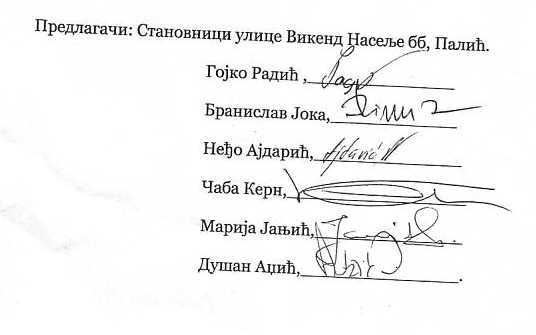 Предлагачи: Становници улице Викенд Насеље бб, Палић.
Гојко Радић ,
Бранислав Јока,
Неђо Ајдарић,
Чаба Керн,
Марија Јањић,
Душан Аџић, .